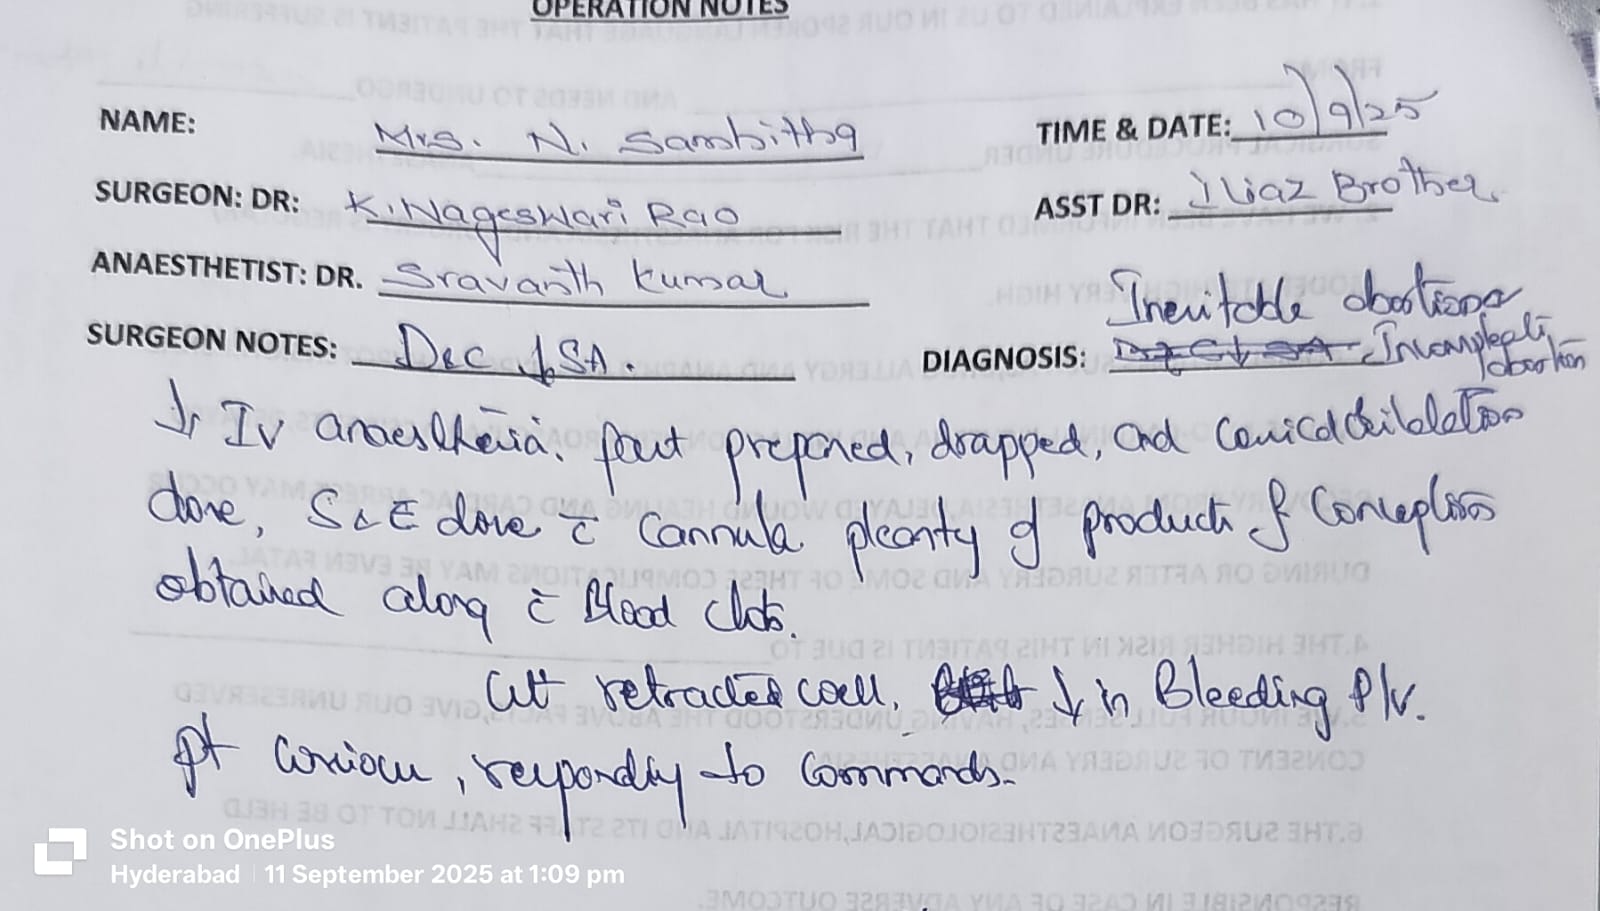 OPERATION NOTES
NAME: Mrs. N. Sambitha
TIME & DATE: 10/9/25
SURGEON: DR: K. Nageswari Rao
ASST DR: Iliaz Brother
ANAESTHETIST: DR. Sravanth Kumar
Inevitable abortion
SURGEON NOTES: D&C ↓ SA.
DIAGNOSIS: D&C ↓ SA Incomplete
abortion
↓ IV anaesthesia. part prepared, drapped, and
done, S & E done c̄ cannula plenty of product of conception
obtained along c̄ Blood clots.
Ut retracted well. ↓ in Bleeding P/V.
pt , responding to commands.
Shot on OnePlus
Hyderabad | 11 September 2025 at 1:09 pm